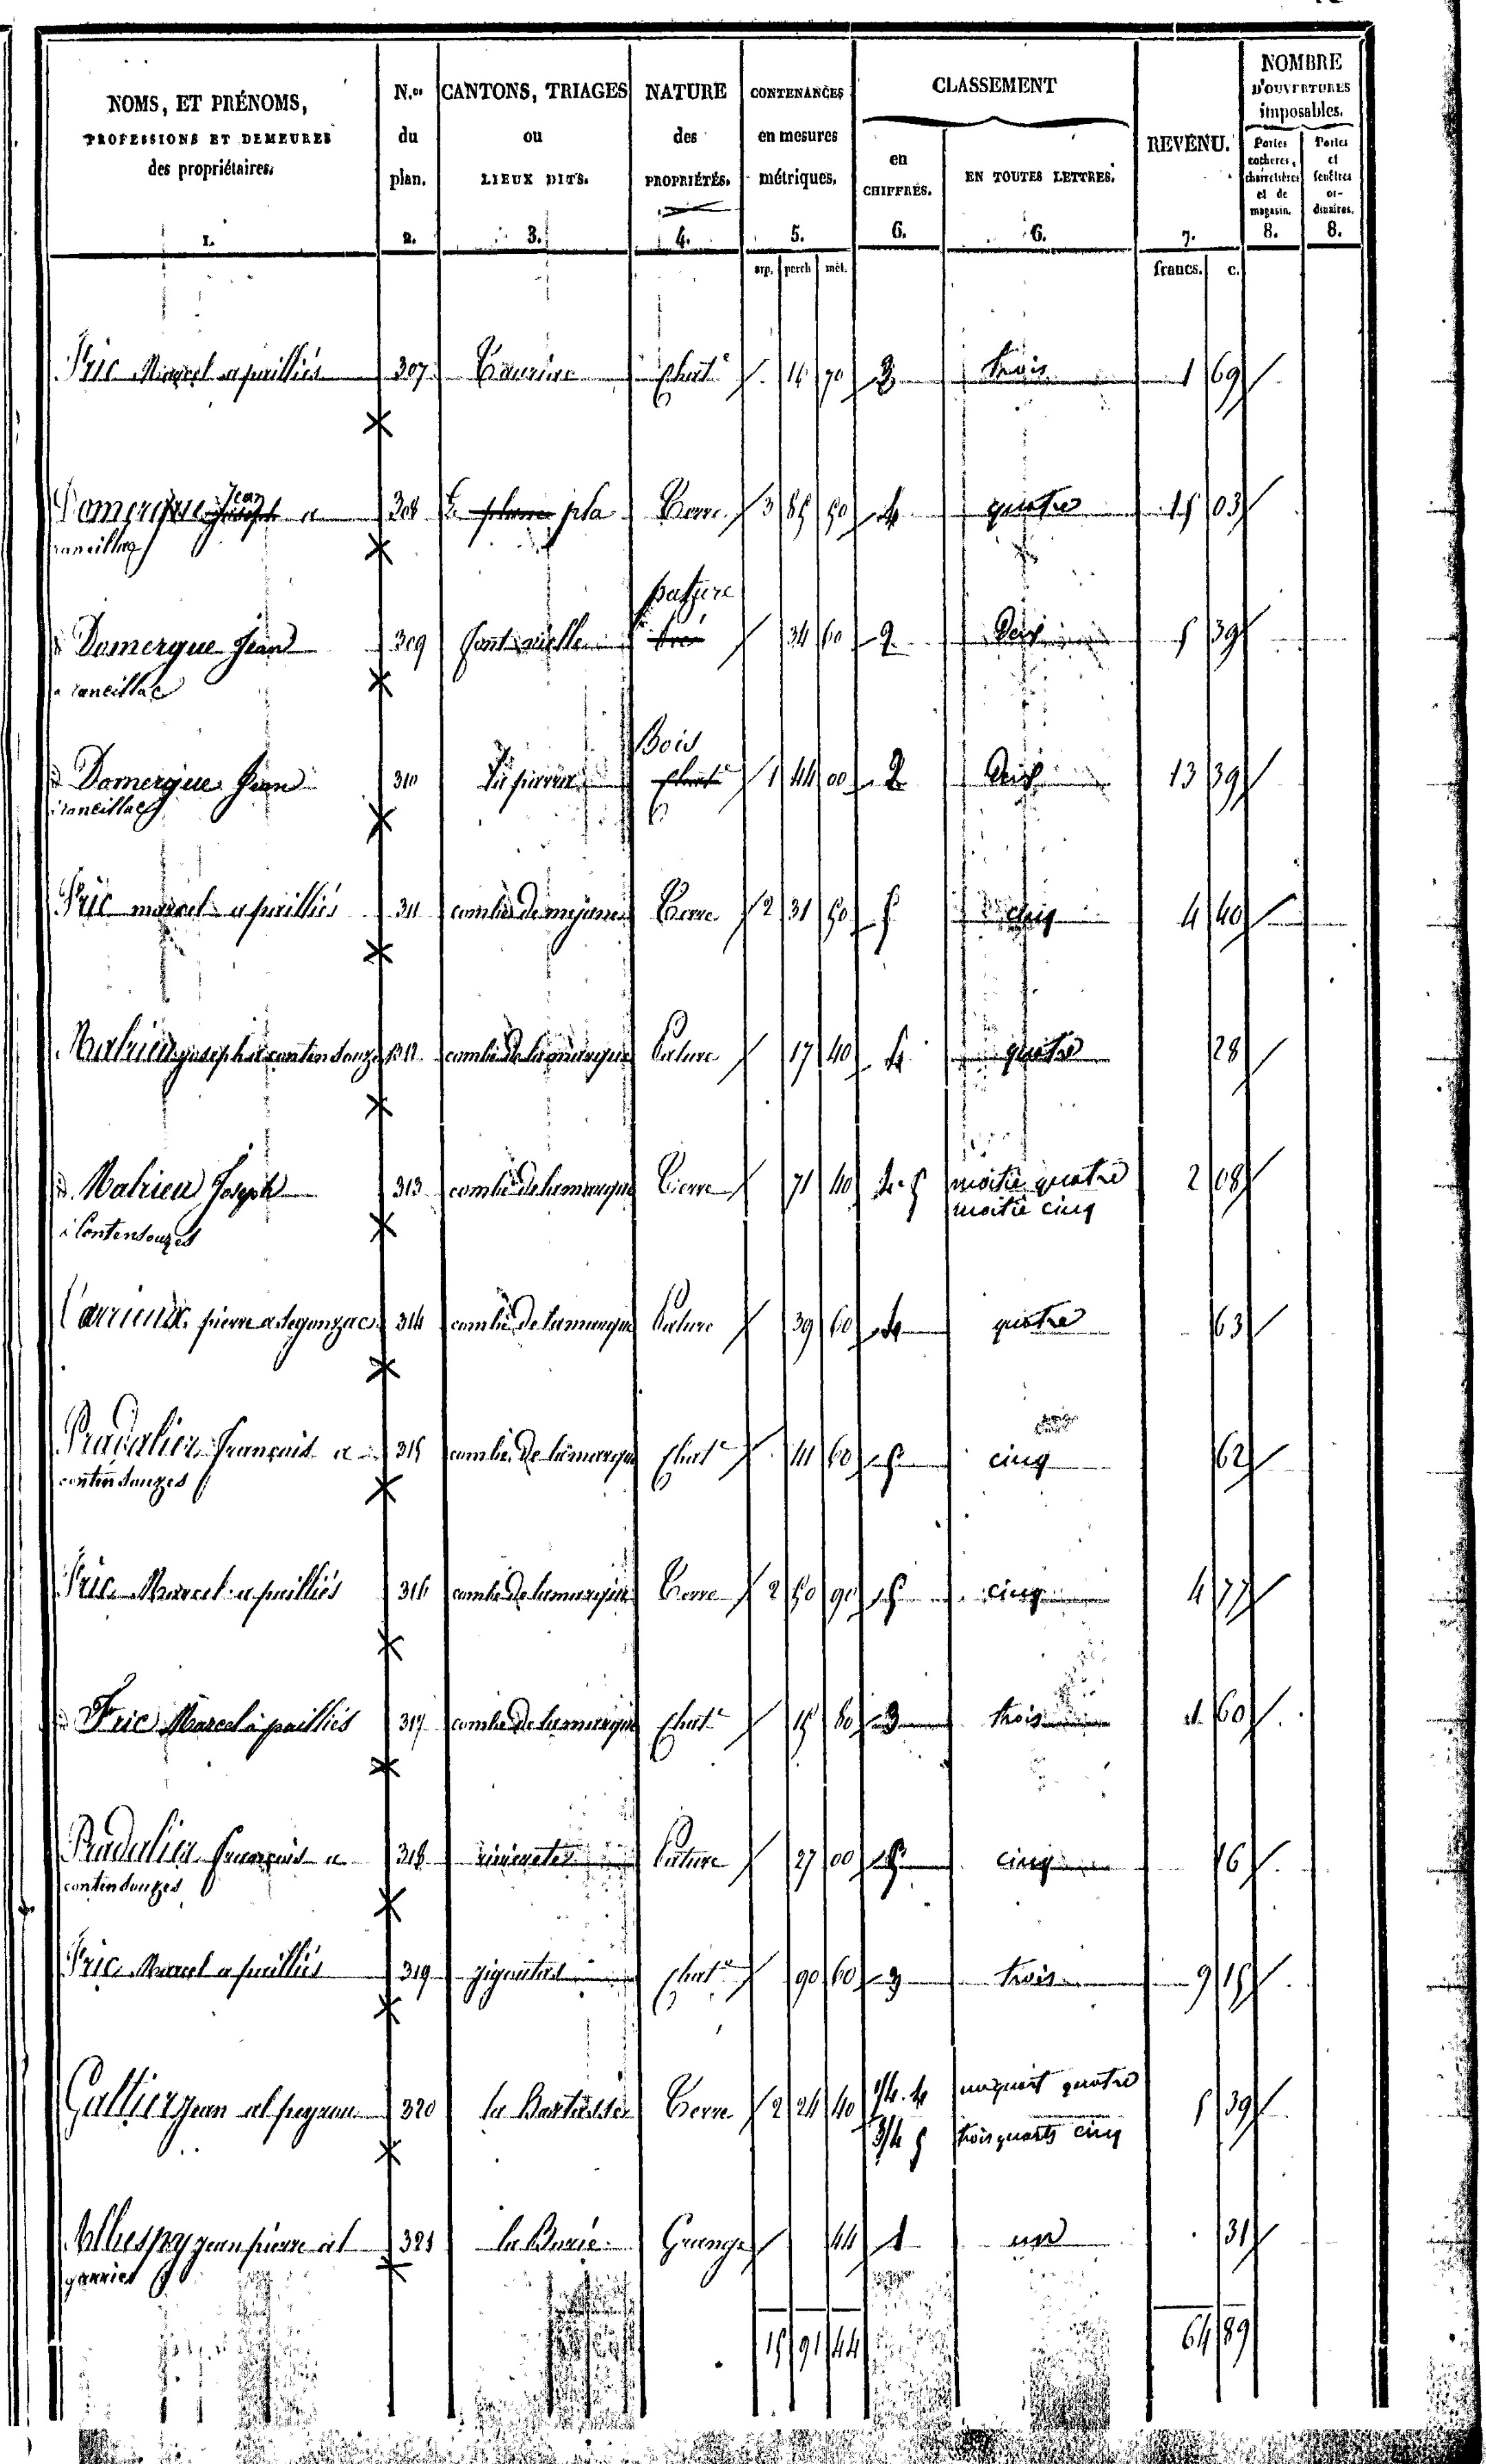 NOMS, ET PRÉNOMS,
PROFESSIONS ET DEMEURES
des propriétaires.
1.
N.os
du
plan.
2.
CANTONS, TRIAGES
ou
LIEUX DITS.
3.
NATURE
des
PROPRIÉTÉS.
4.
CONTENANCES
en mesures
métriques.
5.
arp. perch. mèt.
CLASSEMENT
en
CHIFFRES.
6.
EN TOUTES LETTRES.
6.
REVENU.
7.
francs. c.
NOMBRE
D'OUVERTURES
imposables.
Portes
cochères,
charretières
et de
magasin.
8.
Portes
et
fenêtres
or-
dinaires.
8.
Fric Marcel a pailliés 307 Chat.e 16 70 3 trois 1 69
Jean
Domergue Joseph a 308 pla Terre 3 85 50 4 quatre 15 03
raneillac
pature
Domergue Jean 309 pré 34 60 2 deux 5 39
a raneillac
Bois
Domergue Jean 310 Chat.e 1 44 00 2 deux 13 39
à raneillac
Fric marcel a pailliés 311 combe de mejanes Terre 2 31 50 5 cinq 4 40
Matrieu joseph a contensouzes 312 combe de lamarque Pature 17 40 4 quatre 28
Matrieu Joseph 313 combe de lamarque Terre 71 40 4-5 moitié quatre 2 08
à Contensouzes moitié cinq
pierre a segonzac 314 combe de lamarque Pature 39 60 4 quatre 63
Pradalier françois a 315 combe de lamarque Chat.e 41 60 5 cinq 62
contensouzes
Fric Marcel a pailliés 316 combe de lamarque Terre 2 50 90 5 cinq 4 77
Fric Marcel à pailliés 317 combe de lamarque Chat.e 15 80 3 trois 1 60
Pradalier françois a 318 Pature 27 00 5 cinq 16
contensouzes
Fric Marcel a pailliés 319 gigoutas Chat.e 90 60 3 trois 9 15
Galtier jean al 320 la Bartasse Terre 2 24 40 1/4. 4 un quart quatre 5 39
3/4 5 trois quarts cinq
jean pierre al 321 la Borie Grange 44 1 un 31
15 91 44 64 89